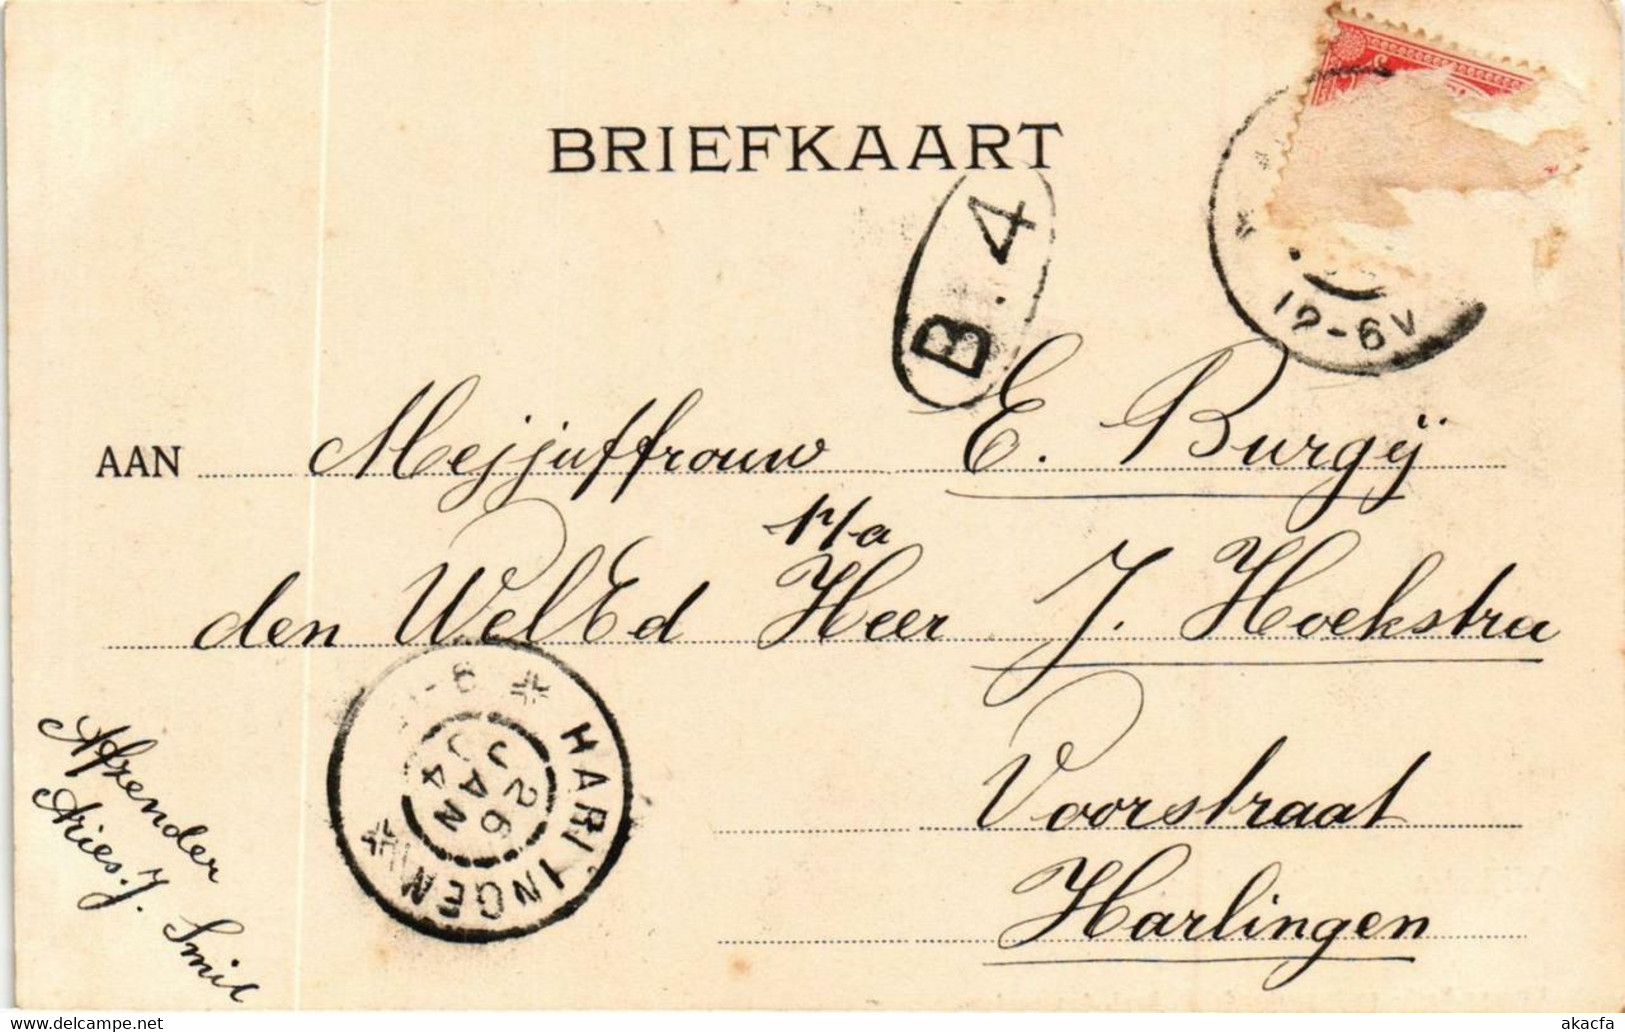 BRIEFKAART
B.4
12-6V
AAN Mejjuffrouw E. Burgÿ
p/a
den WelEd Heer J. Hoekstra
Voorstraat
Harlingen
HARLINGEN
26 JAN 04
Afzender
Aries. J. Smit
akacfa